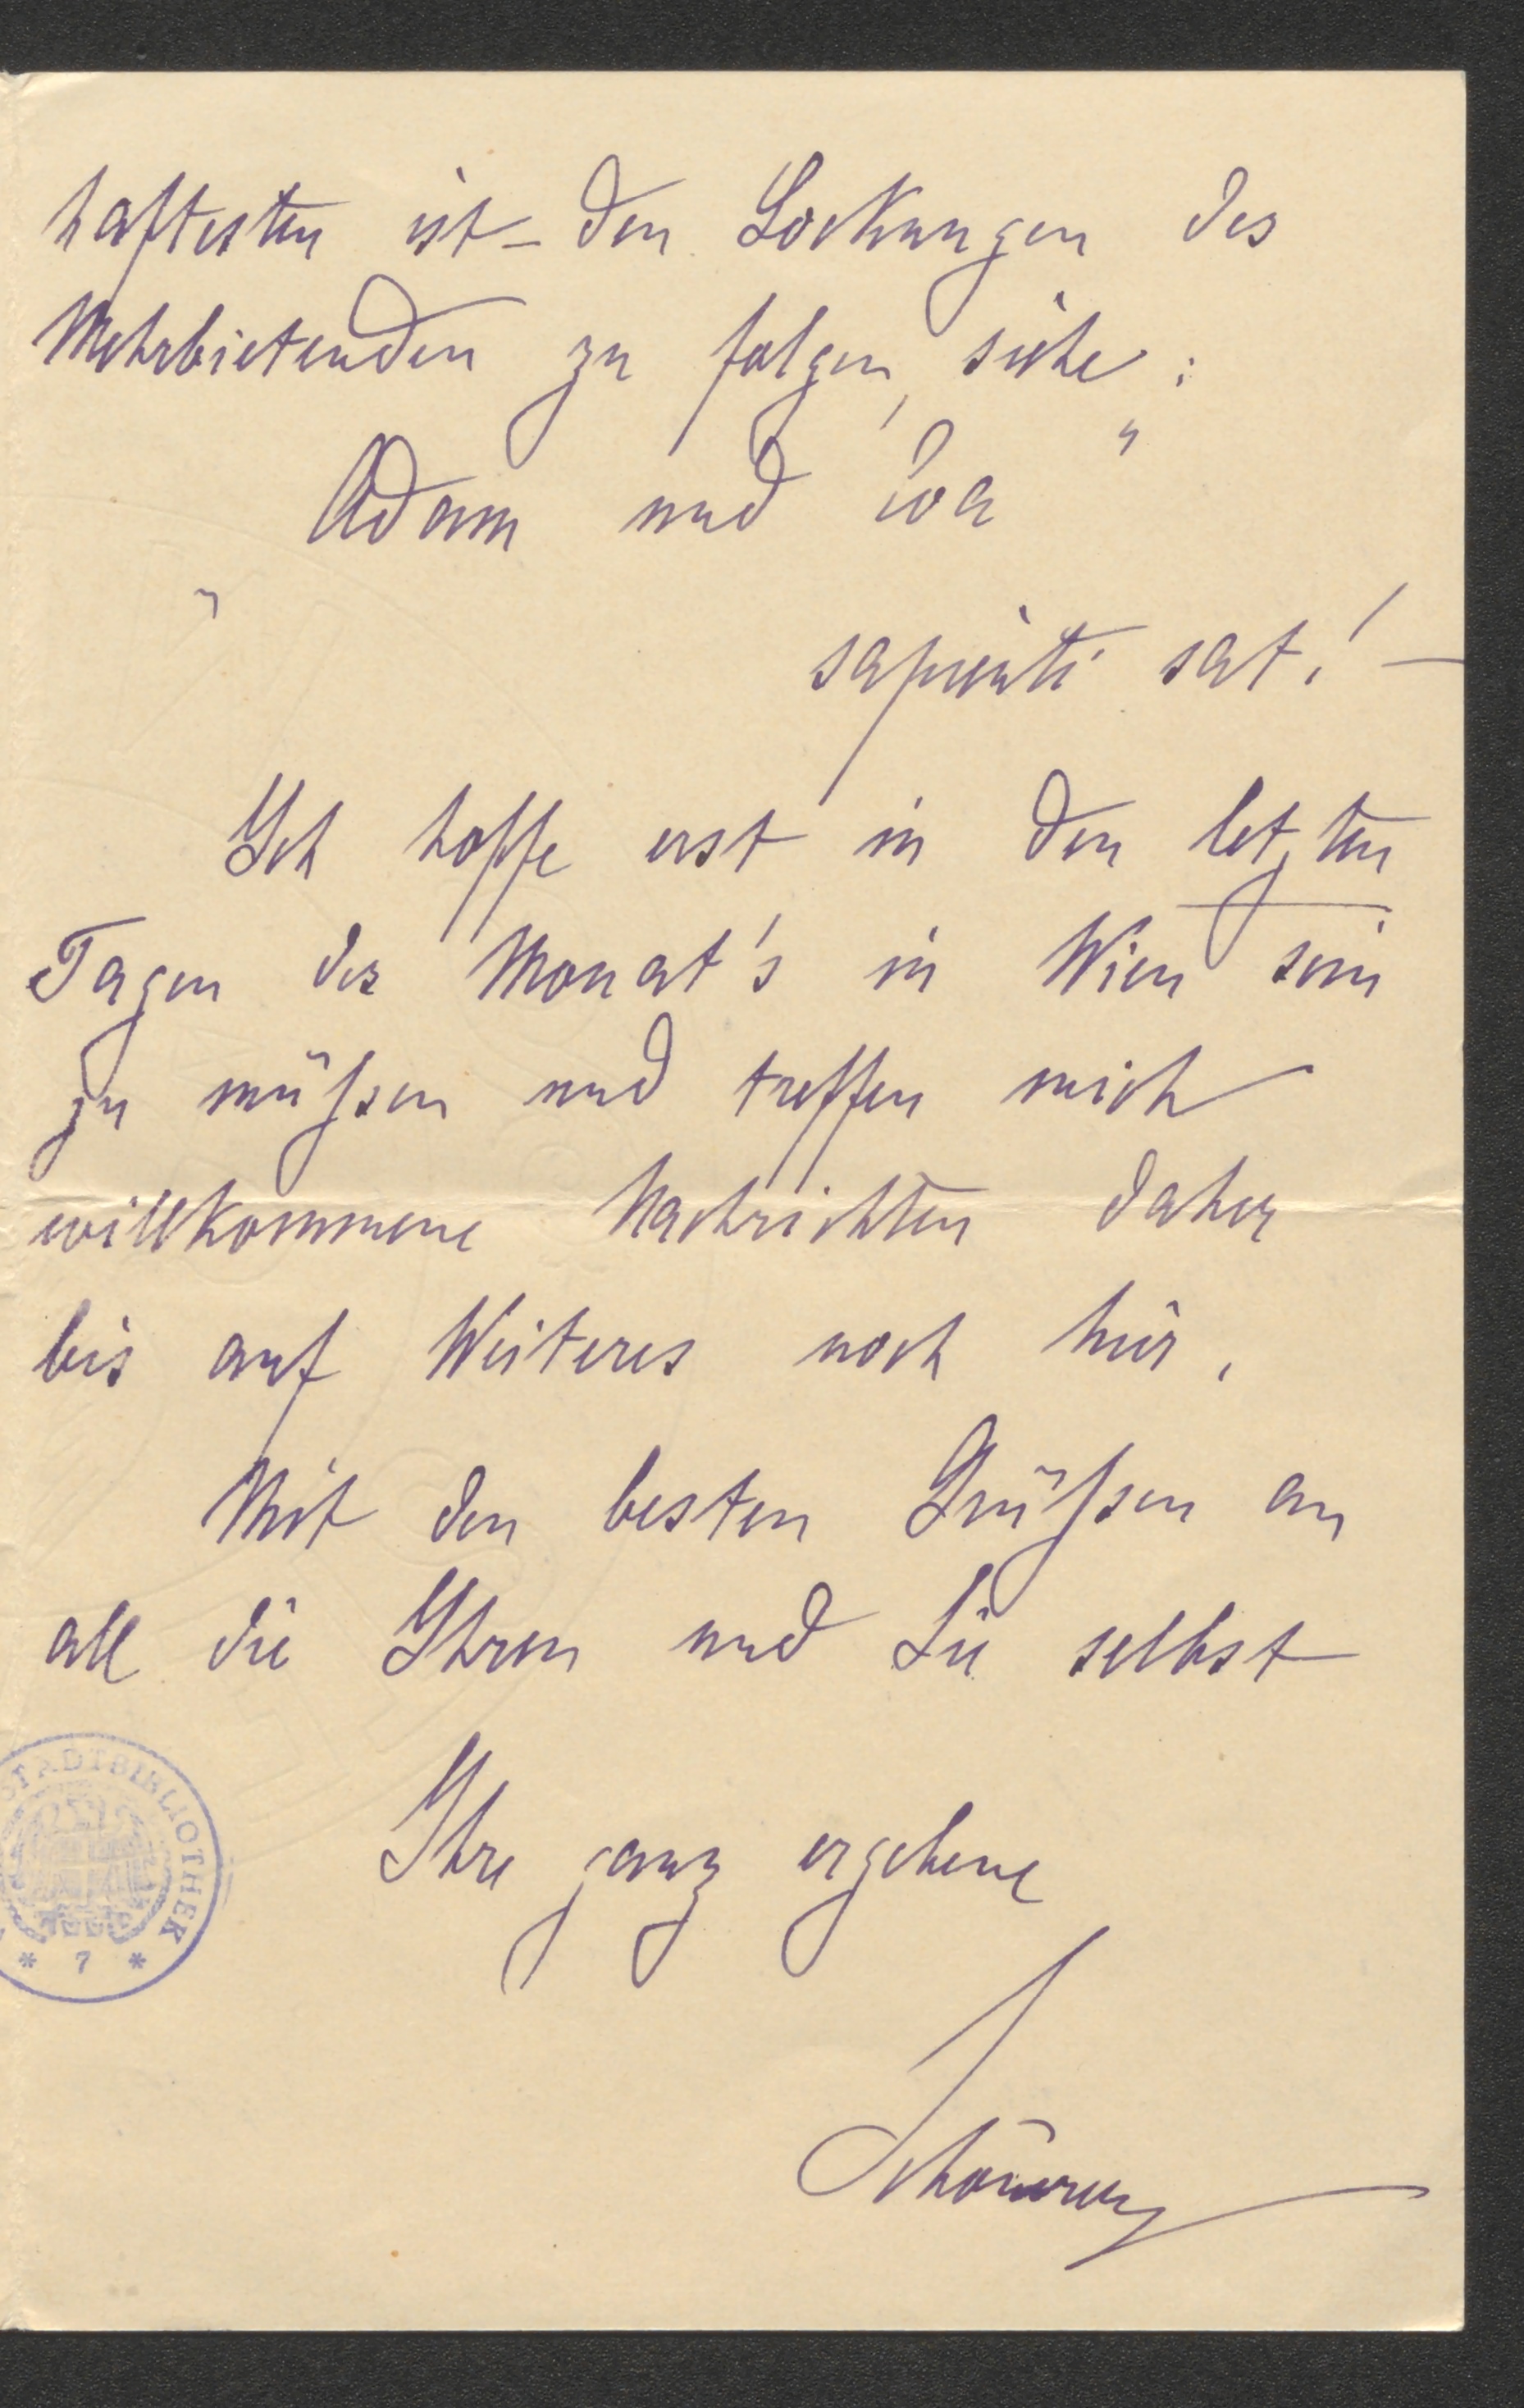 haftesten ist – den Lockungen des
Mehrbietenden zu folgen, siehe:
„Adam und Eva“
sapienti sat! —
Ich hoffe erst in den letzten
Tagen des Monat's in Wien sein
zu müßsen und treffen mich
willkommene Nachrichten daher
bis auf Weiteres noch hier.
Mit den besten Grüßsen an
all die Ihren und Sie selbst
Ihre ganz ergebene
STADTBIBLIOTHEK
* 7 *